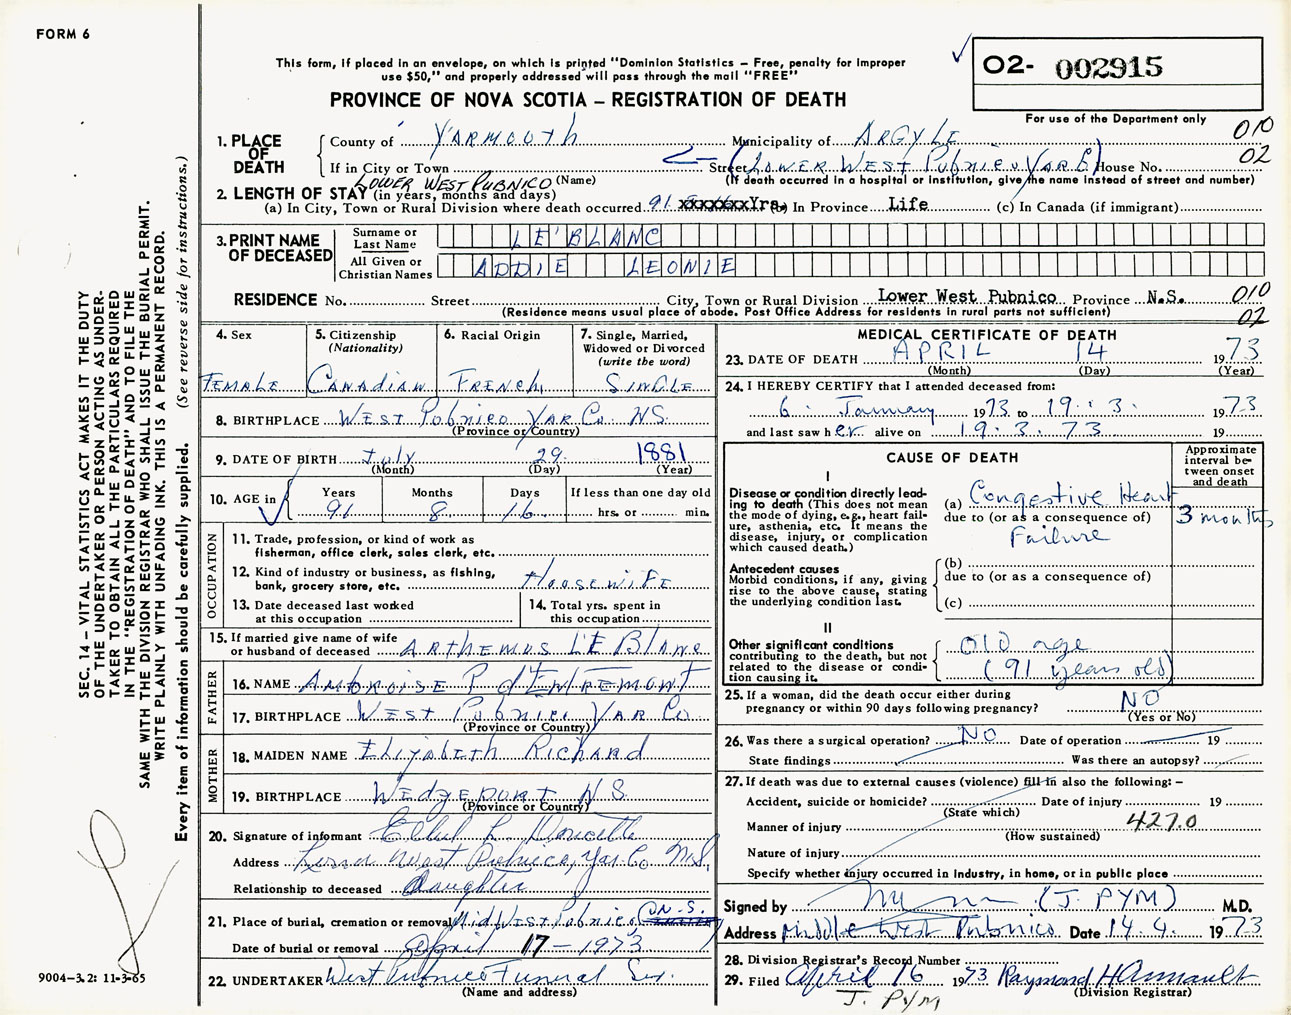 FORM 6
This form, if placed in an envelope, on which is printed "Dominion Statistics – Free, penalty for improper
use $50," and properly addressed will pass through the mail "FREE"
O2- 002915
PROVINCE OF NOVA SCOTIA – REGISTRATION OF DEATH
For use of the Department only
010
02
1. PLACE OF DEATH
County of YARMOUTH Municipality of ARGYLE
If in City or Town Street (LOWER WEST PUBNICO YAR C) House No.
LOWER WEST PUBNICO (Name) (If death occurred in a hospital or institution, give the name instead of street and number)
2. LENGTH OF STAY (in years, months and days)
(a) In City, Town or Rural Division where death occurred 91 xxxxxxxYrs. (b) In Province Life (c) In Canada (if immigrant)
3. PRINT NAME OF DECEASED
Surname or Last Name LE'BLANC
All Given or Christian Names ADDIE LEONIE
RESIDENCE No. Street City, Town or Rural Division Lower West Pubnico Province N.S. 010
(Residence means usual place of abode. Post Office Address for residents in rural parts not sufficient) 02
4. Sex
FEMALE
5. Citizenship (Nationality)
CANADIAN
6. Racial Origin
FRENCH
7. Single, Married, Widowed or Divorced (write the word)
SINGLE
8. BIRTHPLACE WEST PUBNICO YAR CO NS.
(Province or Country)
9. DATE OF BIRTH July 29 1881
(Month) (Day) (Year)
10. AGE in Years Months Days If less than one day old
91 8 16 hrs. or min.
OCCUPATION
11. Trade, profession, or kind of work as
fisherman, office clerk, sales clerk, etc.
12. Kind of industry or business, as fishing,
bank, grocery store, etc. HOOSEWIFE
13. Date deceased last worked
at this occupation
14. Total yrs. spent in
this occupation
15. If married give name of wife
or husband of deceased ARTHEMUS LE BLANC
FATHER
16. NAME AMBROISE P d'ENTREMONT
17. BIRTHPLACE WEST PUBNICO YAR CO
(Province or Country)
MOTHER
18. MAIDEN NAME ELIZABETH RICHARD
19. BIRTHPLACE WEDGEPORT N S
(Province or Country)
20. Signature of informant
Address Lower West Pubnico, Yar. Co N.S.
Relationship to deceased Daughter
21. Place of burial, cremation or removal Mid West Pubnico N.S.
Date of burial or removal April 17 – 1973
22. UNDERTAKER West Pubnico Funeral Ser.
(Name and address)
MEDICAL CERTIFICATE OF DEATH
23. DATE OF DEATH APRIL 14 1973
(Month) (Day) (Year)
24. I HEREBY CERTIFY that I attended deceased from:
6. January 1973 to 19. 3. 1973
and last saw her alive on 19. 3. 73 19
CAUSE OF DEATH
Approximate interval between onset and death
I
Disease or condition directly leading to death (This does not
mean the mode of dying, e.g., heart failure, asthenia, etc. It means the
disease, injury, or complication
which caused death.)
(a) Congestive Heart
due to (or as a consequence of)
Failure
3 months
Antecedent causes
Morbid conditions, if any, giving
rise to the above cause, stating
the underlying condition last.
(b)
due to (or as a consequence of)
(c)
II
Other significant conditions
contributing to the death, but not
related to the disease or condition causing it.
Old age
(91 years old)
25. If a woman, did the death occur either during
pregnancy or within 90 days following pregnancy? NO
(Yes or No)
26. Was there a surgical operation? NO Date of operation 19
State findings Was there an autopsy?
27. If death was due to external causes (violence) fill in also the following: –
Accident, suicide or homicide? Date of injury 19
(State which)
Manner of injury 427.0
(How sustained)
Nature of injury
Specify whether injury occurred in industry, in home, or in public place
Signed by (J. PYM) M.D.
Address Middle West Pubnico Date 14. 4. 1973
28. Division Registrar's Record Number
29. Filed April 16 1973 Raymond H Amirault
J. PYM (Division Registrar)
SEC. 14 – VITAL STATISTICS ACT MAKES IT THE DUTY
OF THE UNDERTAKER OR PERSON ACTING AS UNDERTAKER TO OBTAIN ALL THE PARTICULARS REQUIRED
IN THE "REGISTRATION OF DEATH" AND TO FILE THE
SAME WITH THE DIVISION REGISTRAR WHO SHALL ISSUE THE BURIAL PERMIT.
WRITE PLAINLY WITH UNFADING INK. THIS IS A PERMANENT RECORD.
Every item of information should be carefully supplied. (See reverse side for instructions.)
9004–3.2: 11-3-65